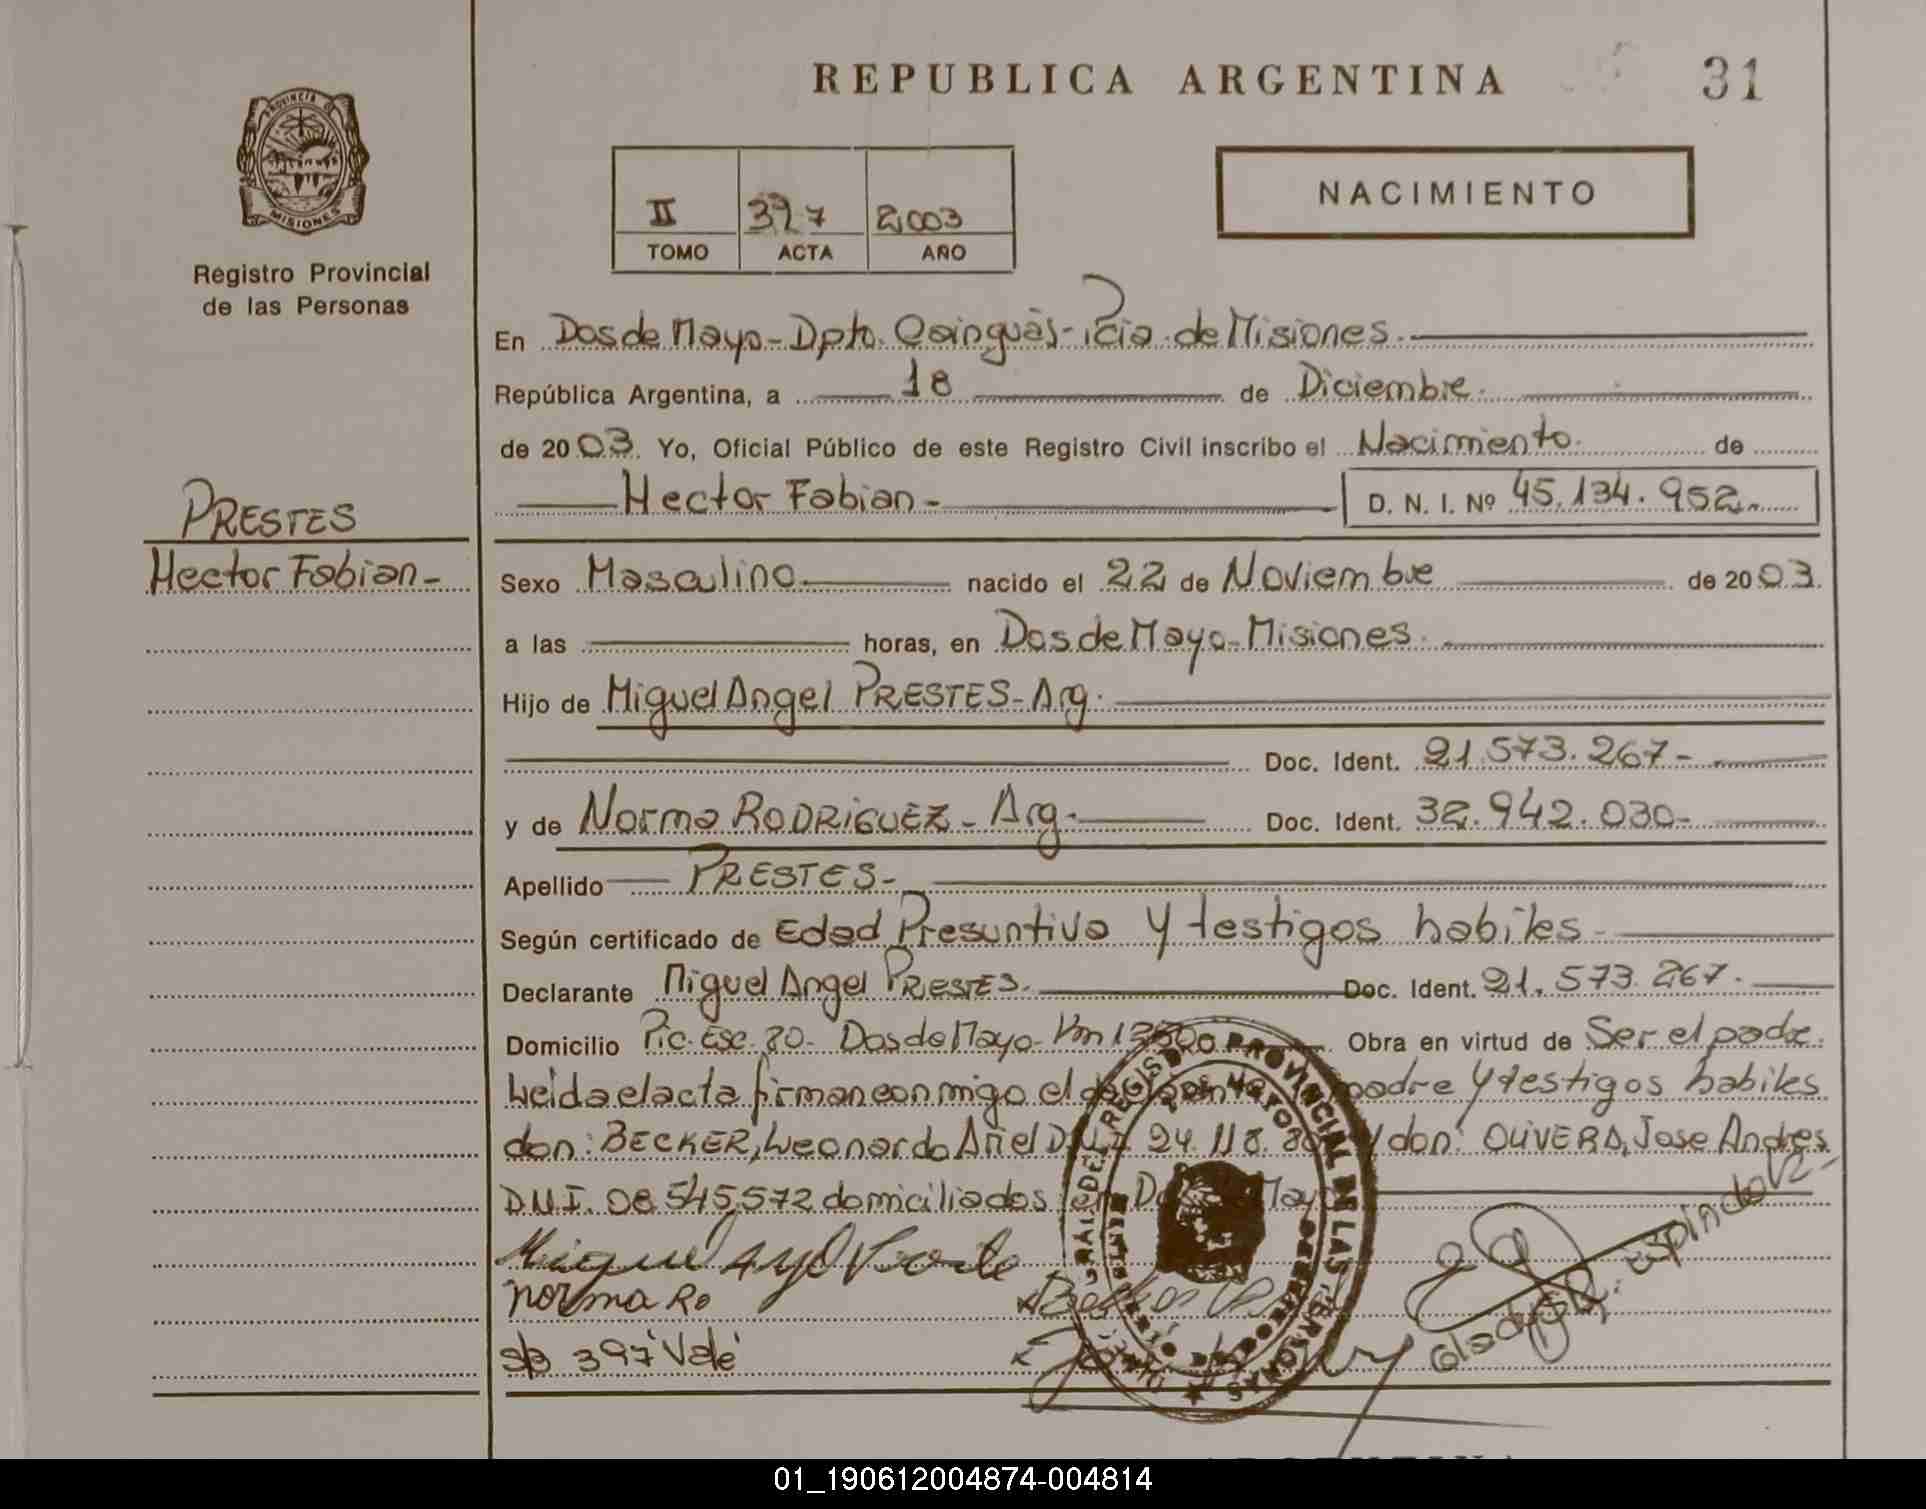 REPUBLICA ARGENTINA
31
PROVINCIA DE
MISIONES
Registro Provincial
de las Personas
II 397 2003
TOMO ACTA AÑO
NACIMIENTO
En Dos de Mayo - Dpto. Cainguàs - Pcia. de Misiones.
República Argentina, a 18 de Diciembre.
de 2003. Yo, Oficial Público de este Registro Civil inscribo el Nacimiento. de
Hector Fabian - D. N. I. Nº 45.134.952.
PRESTES
Hector Fabian -
Sexo Masculino nacido el 22 de Noviembre de 2003.
a las horas, en Dos de Mayo - Misiones.
Hijo de Miguel Angel PRESTES - Arg.
Doc. Ident. 21.573.267 -
y de Norma RODRIGUEZ - Arg. Doc. Ident. 32.942.030 -
Apellido PRESTES -
Según certificado de Edad Presuntiva y testigos habiles -
Declarante Miguel Angel PRESTES. Doc. Ident. 21.573.267.
Domicilio Pic. Esc. 80 - Dos de Mayo - Km Obra en virtud de Ser el padre.
Leida el acta firman conmigo el padre y testigos habiles
don: BECKER, Leonardo Ariel D.N.I. 24.118. y don: OLIVERA, Jose Andres
D.N.I. 08.545.572 domiciliados en Dos de Mayo
Norma Ro
s/b 397 Vale
REGISTRO PROVINCIAL DE LAS PERSONAS
Gladys R. Espindola
01_190612004874-004814